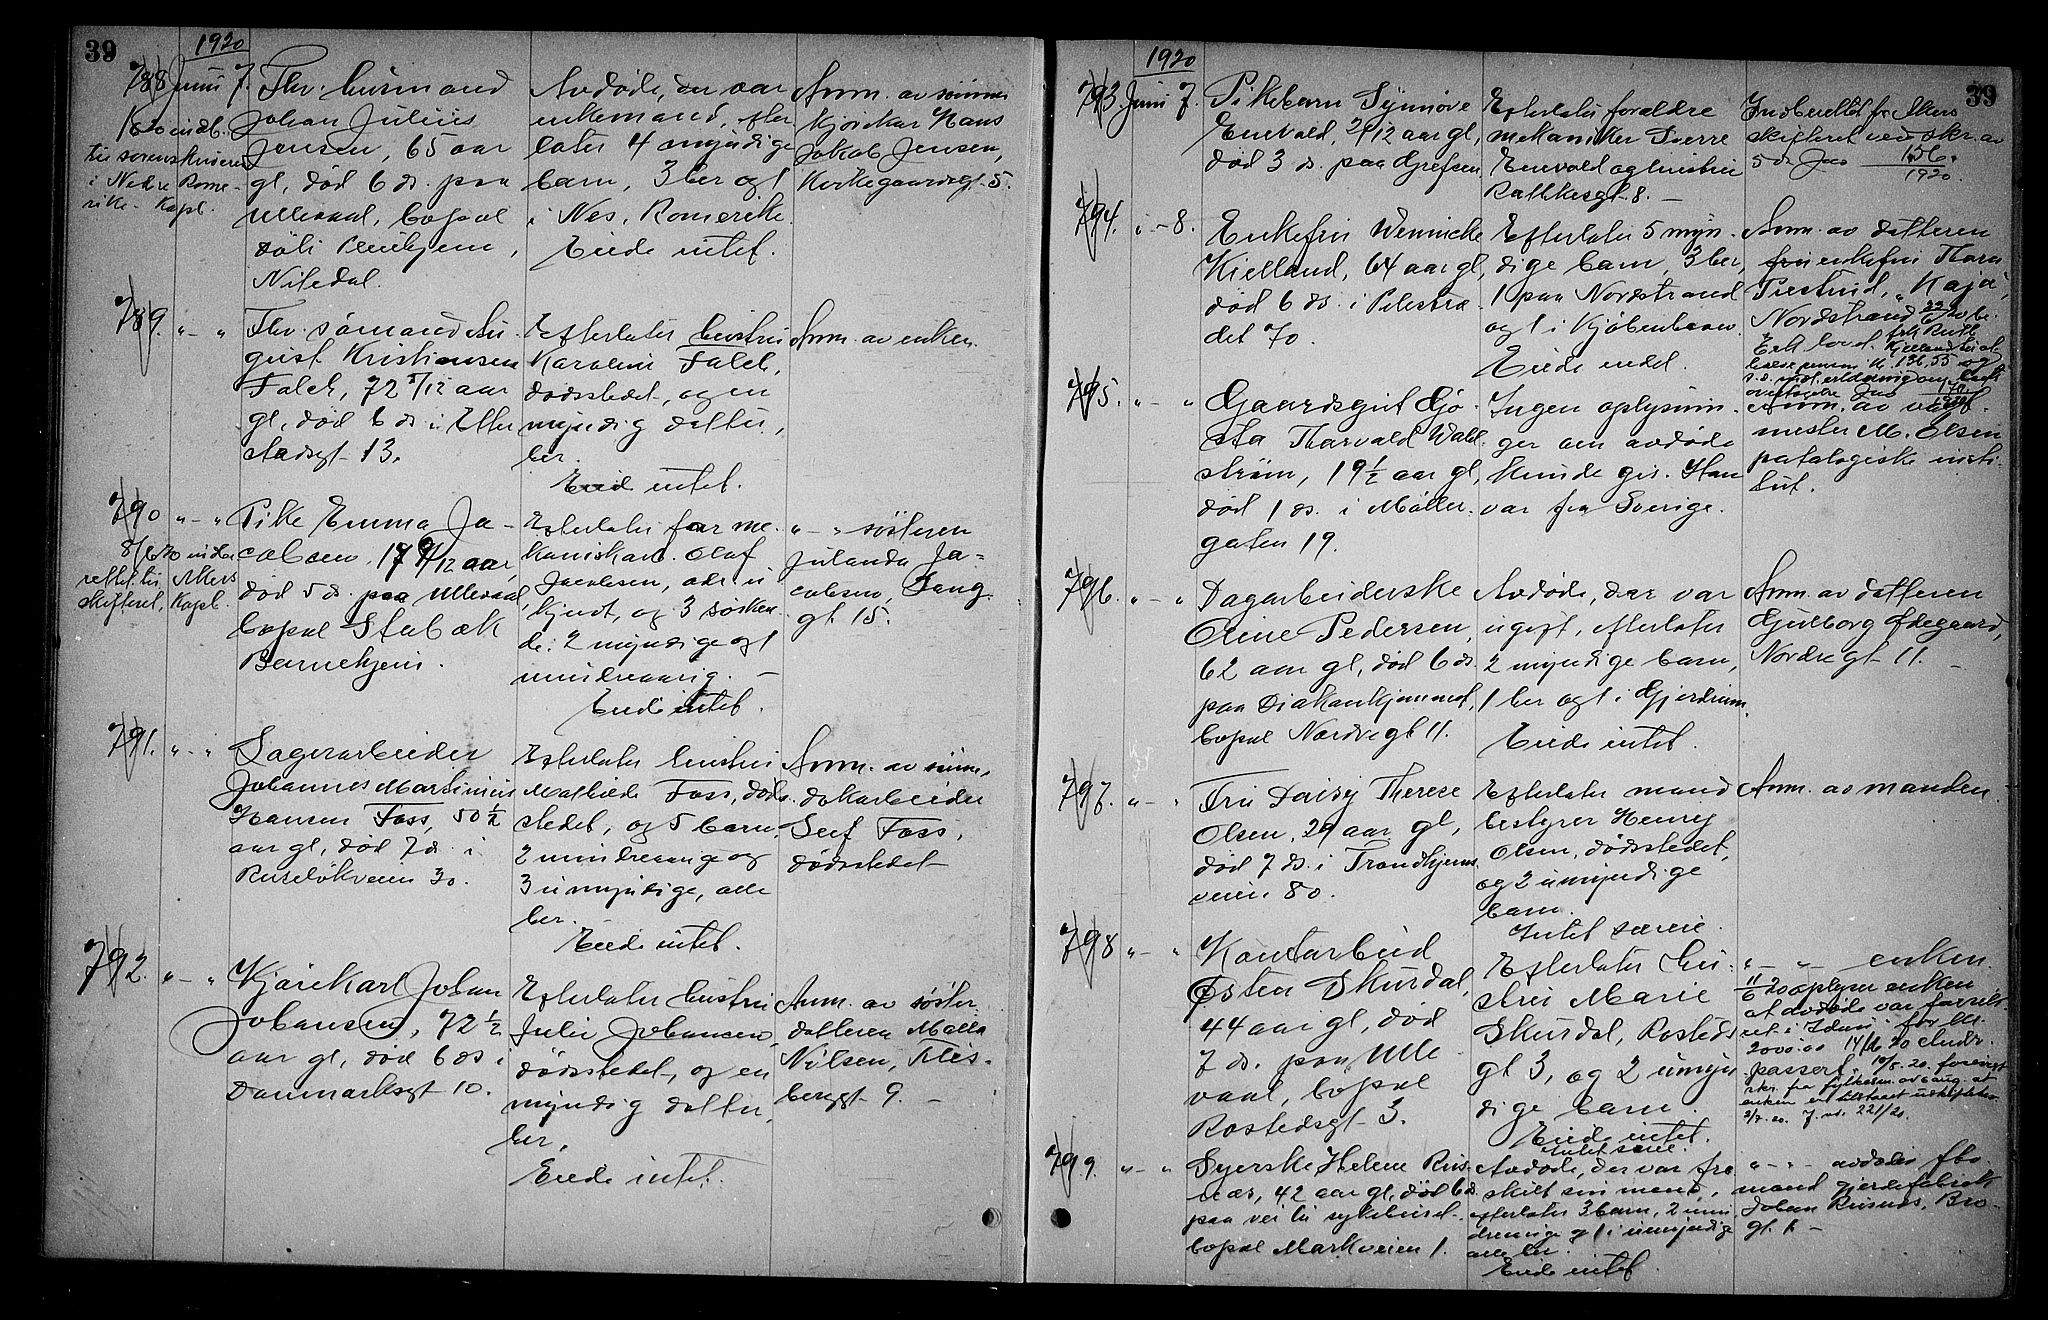 39
1920
788 Juni 7.
1920 indb.
til sorenskriveren
i Nedre Rome-
rike. Kapt.
Fhv. husmand
Johan Julius
Jensen, 65 aar
gl, død 6 ds. paa
Ullevaal, bopæl
Døli Pleiehjem,
Nitedal.
Avdøde, der var
enkemand, efter
later 4 myndige
barn, 3 her og 1
i Nes, Romerike.
Eiede intet.
Anm. av sønnen
kjørekar Hans
Jakob Jensen,
Kirkegaardsgt. 5.
789. " - "
Fhv. sømand Au-
gust Kristiansen
Falch, 72 5/12 aar
gl, død 6 ds i Etter
stadsgt 13.
Efterlater hustru
Karoline Falch,
dødsstedet, og en
myndig datter,
her.
Eied intet.
Anm. av enken.
790 " - "
8/6 20 indbe
rettet til Akers
skifteret, Kapt.
Pike Emma Ja-
cobsen, 17 9/12 aar,
død 5 ds. paa Ullevaal,
bopæl Stabæk
Barnehjem.
Efterlater far me-
kaniskarb. Olaf
Jacobsen, adr. u
kjendt, og 3 søsken-
de: 2 myndige og 1
mindreaarig. -
Eied intet.
" - " søsteren
Julanda Ja-
cobsen, Jens
gt. 15.
791. " - "
Sagerarbeider
Johannes Martinius
Hansen Foss, 50 1/2
aar gl, død 7 ds. i
Ruseløkveien 30.
Efterlater hustru
Mathilde Foss, døds-
stedet, og 5 barn,
2 mindreaarige og
3 umyndige, alle
her.
Eiede intet.
Anm. av sønn,
dokarbeider
Leif Foss,
dødsstedet
792. " - "
Kjørekarl Johan
Johansen, 72 1/2
aar gl, død 6 ds i
Danmarksgt 10.
Efterlater hustru
Julie Johansen,
dødsstedet, og en
myndig datter,
her.
Eiede intet.
Anm. av søster
datteren Malla
Nilsen, Heis-
bergt 9. -
39
1920
793. Juni 7.
Pikebarn Synnøve
Enevald, 2/12 aar gl,
død 3 ds. paa Grefsen
Efterlater forældre
mekaniker Sverre
Enevald og hustru
Rathkesgt 8. -
Indberettet fra Akers
skifteret ved skr. av
5 ds Jno 156.
1920.
794. " - 8.
Enkefru Wenniche
Kielland, 64 aar gl,
død 6 ds. i Pilestræ
det 70.
Efterlater 5 myn-
dige barn, 3 her,
1 paa Nordstrand
og 1 i Kjøbenhavn.
Eiede intet.
Anm. av datteren
fru enkefru Thora
Prestrud, "Kaja",
Nordstrand
795. " - "
Gaardsgut Gjø-
sta Thorvald Wahl-
strøm, 19 1/2 aar gl,
død 1 ds. i Møller-
gaten 19.
Ingen oplysnin-
ger om avdøde
kunde gis. Han
var fra Sverige.
Anm. av vagt-
mester M. Olsen
patologiske insti-
tut.
796. " - "
Dagarbeiderske
Oline Pedersen,
62 aar gl, død 6 ds.
paa Diakonhjemmet,
bopæl Nordregt 11.
Avdøde, der var
ugift, efterlater
2 myndige barn,
1 her og 1 i Gjerdrum.
Eiede intet.
Anm. av datteren
Gjulborg Ødegaard,
Nordregt 11. -
797. " - "
Fru Daisy Therese
Olsen, 29 aar gl,
død 7 ds. i Trondhjems-
veien 80.
Efterlater mand
bestyrer Henry
Olsen, dødsstedet,
og 2 umyndige
barn.
Intet særeie.
Anm. av manden.
798 " - "
Kontorbeid
Østen Skurdal,
44 aar gl, død
7 ds. paa Ulle-
vaal, bopæl
Rostedsgt 3.
Efterlater hu-
stru Marie
Skurdal, Rosteds
gt 3, og 2 umyn
dige barn.
Eiede intet.
Intet særeie.
" - " enken.
11/6 20 oplyser enken
at avdøde var forsik-
ret i "Idun" for kr.
2000.00 14/6 20 Andr.
passert.
799. " - "
Syerske Helene Rus-
næs, 42 aar gl, død 6 ds.
paa vei til sykehuset,
bopæl Markveien 1.
Avdøde, der var fra
skilt sin mand,
efterlater 3 barn, 2 min
dreaarige og 1 umyndige
alle her.
Eiede intet.
" - " avdødes fhv.
mand gjerdefabrik
Johan Rusnæs, Bro-
gt. 1 -